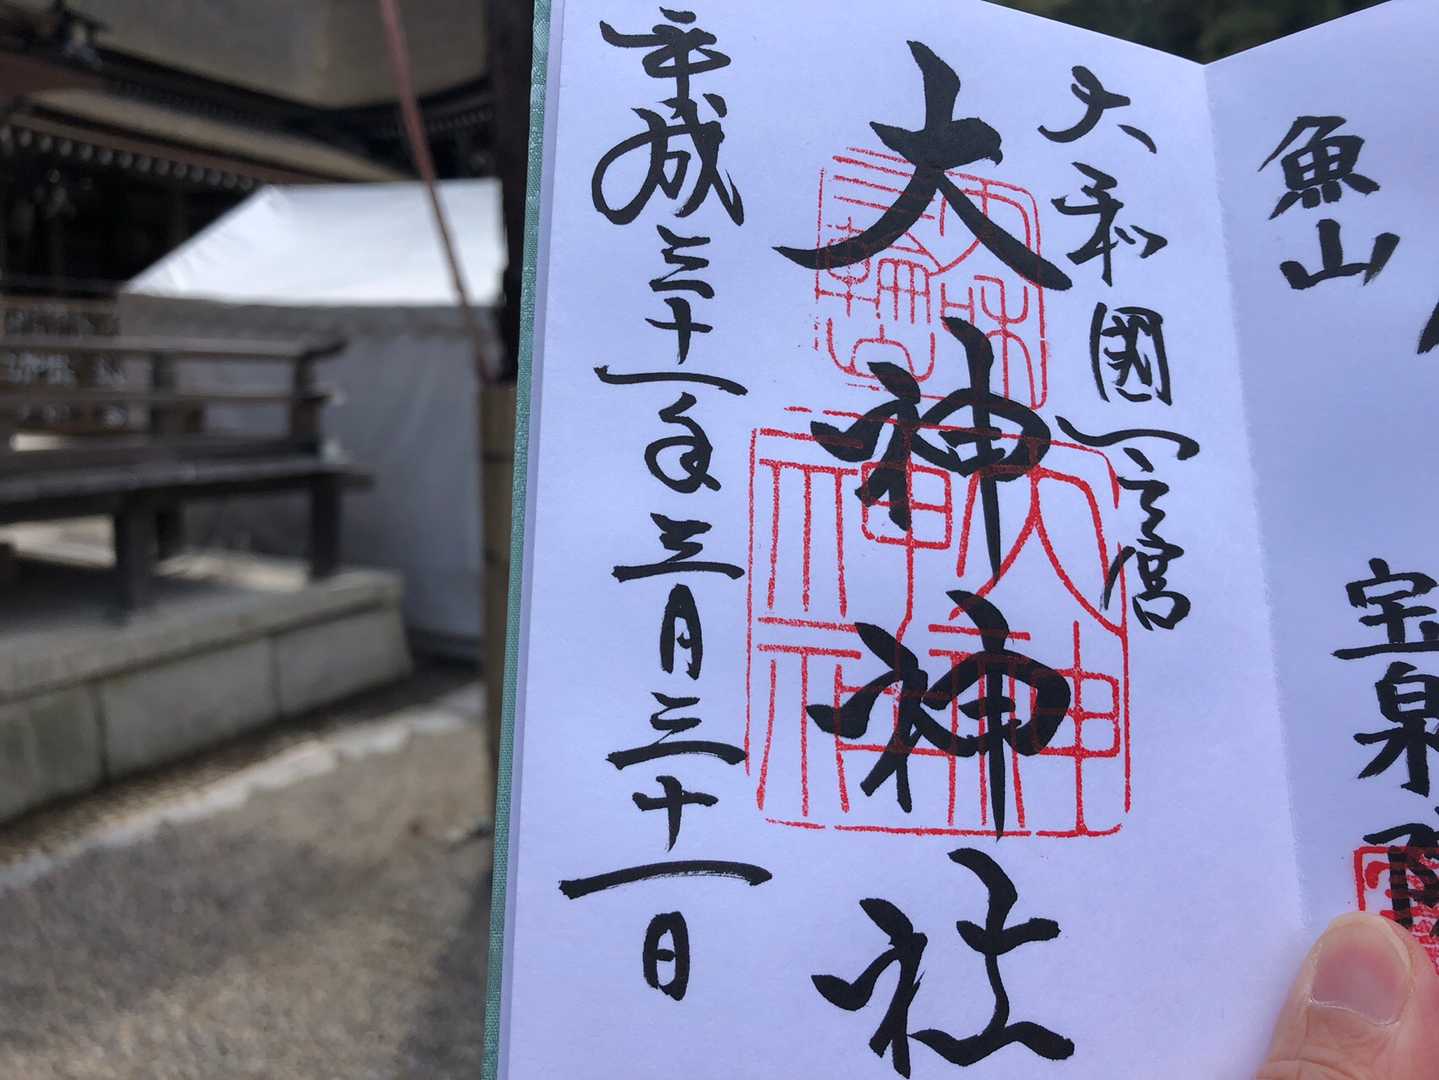 魚山
宝泉院
大和國一之宮
大神神社
平成三十一年三月三十一日
大和
三輪山
大神
神社